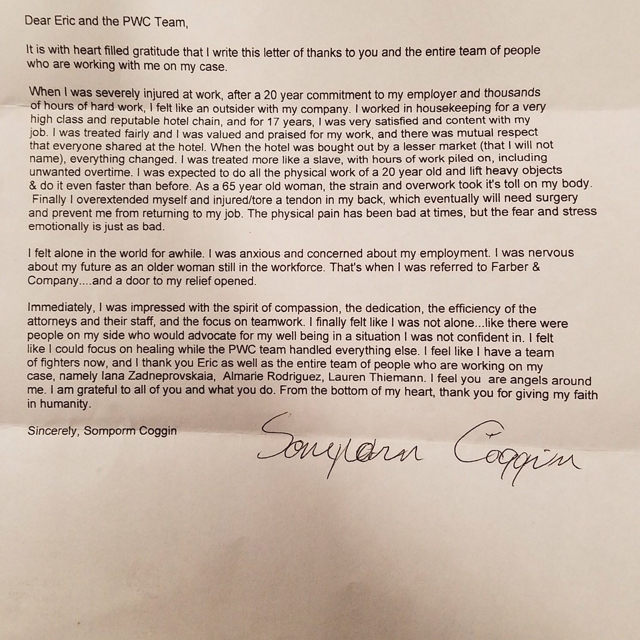 Dear Eric and the PWC Team,
It is with heart filled gratitude that I write this letter of thanks to you and the entire team of people
who are working with me on my case.
When I was severely injured at work, after a 20 year commitment to my employer and thousands
of hours of hard work, I felt like an outsider with my company. I worked in housekeeping for a very
high class and reputable hotel chain, and for 17 years, I was very satisfied and content with my
job. I was treated fairly and I was valued and praised for my work, and there was mutual respect
that everyone shared at the hotel. When the hotel was bought out by a lesser market (that I will not
name), everything changed. I was treated more like a slave, with hours of work piled on, including
unwanted overtime. I was expected to do all the physical work of a 20 year old and lift heavy objects
& do it even faster than before. As a 65 year old woman, the strain and overwork took it's toll on my body.
Finally I overextended myself and injured/tore a tendon in my back, which eventually will need surgery
and prevent me from returning to my job. The physical pain has been bad at times, but the fear and stress
emotionally is just as bad.
I felt alone in the world for awhile. I was anxious and concerned about my employment. I was nervous
about my future as an older woman still in the workforce. That's when I was referred to Farber &
Company....and a door to my relief opened.
Immediately, I was impressed with the spirit of compassion, the dedication, the efficiency of the
attorneys and their staff, and the focus on teamwork. I finally felt like I was not alone...like there were
people on my side who would advocate for my well being in a situation I was not confident in. I felt
like I could focus on healing while the PWC team handled everything else. I feel like I have a team
of fighters now, and I thank you Eric as well as the entire team of people who are working on my
case, namely Iana Zadneprovskaia, Almarie Rodriguez, Lauren Thiemann. I feel you are angels around
me. I am grateful to all of you and what you do. From the bottom of my heart, thank you for giving my faith
in humanity.
Sincerely, Somporm Coggin
Somporm Coggin